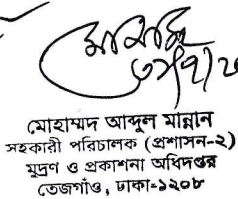 মোহাম্মদ আব্দুল মান্নান
সহকারী পরিচালক (প্রশাসন-২)
মুদ্রণ ও প্রকাশনা অধিদপ্তর
তেজগাঁও, ঢাকা-১২০৮